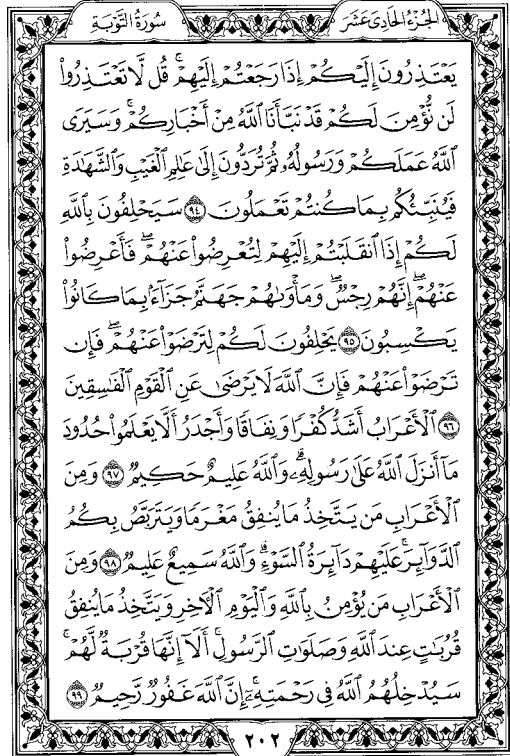 الجُزْءُ الحَادِى عَشَرَ
سُورَةُ التَّوْبَةِ
يَعْتَذِرُونَ إِلَيْكُمْ إِذَا رَجَعْتُمْ إِلَيْهِمْ ۚ قُل لَّا تَعْتَذِرُوا۟
لَن نُّؤْمِنَ لَكُمْ قَدْ نَبَّأَنَا ٱللَّهُ مِنْ أَخْبَارِكُمْ ۚ وَسَيَرَى
ٱللَّهُ عَمَلَكُمْ وَرَسُولُهُۥ ثُمَّ تُرَدُّونَ إِلَىٰ عَٰلِمِ ٱلْغَيْبِ وَٱلشَّهَٰدَةِ
فَيُنَبِّئُكُم بِمَا كُنتُمْ تَعْمَلُونَ ٩٤ سَيَحْلِفُونَ بِٱللَّهِ
لَكُمْ إِذَا ٱنقَلَبْتُمْ إِلَيْهِمْ لِتُعْرِضُوا۟ عَنْهُمْ ۖ فَأَعْرِضُوا۟
عَنْهُمْ ۖ إِنَّهُمْ رِجْسٌ ۖ وَمَأْوَىٰهُمْ جَهَنَّمُ جَزَآءًۢ بِمَا كَانُوا۟
يَكْسِبُونَ ٩٥ يَحْلِفُونَ لَكُمْ لِتَرْضَوْا۟ عَنْهُمْ ۖ فَإِن
تَرْضَوْا۟ عَنْهُمْ فَإِنَّ ٱللَّهَ لَا يَرْضَىٰ عَنِ ٱلْقَوْمِ ٱلْفَٰسِقِينَ
٩٦ ٱلْأَعْرَابُ أَشَدُّ كُفْرًا وَنِفَاقًا وَأَجْدَرُ أَلَّا يَعْلَمُوا۟ حُدُودَ
مَآ أَنزَلَ ٱللَّهُ عَلَىٰ رَسُولِهِۦ ۗ وَٱللَّهُ عَلِيمٌ حَكِيمٌ ٩٧ وَمِنَ
ٱلْأَعْرَابِ مَن يَتَّخِذُ مَا يُنفِقُ مَغْرَمًا وَيَتَرَبَّصُ بِكُمُ
ٱلدَّوَآئِرَ ۚ عَلَيْهِمْ دَآئِرَةُ ٱلسَّوْءِ ۗ وَٱللَّهُ سَمِيعٌ عَلِيمٌ ٩٨ وَمِنَ
ٱلْأَعْرَابِ مَن يُؤْمِنُ بِٱللَّهِ وَٱلْيَوْمِ ٱلْءَاخِرِ وَيَتَّخِذُ مَا يُنفِقُ
قُرُبَٰتٍ عِندَ ٱللَّهِ وَصَلَوَٰتِ ٱلرَّسُولِ ۚ أَلَآ إِنَّهَا قُرْبَةٌ لَّهُمْ ۚ
سَيُدْخِلُهُمُ ٱللَّهُ فِى رَحْمَتِهِۦٓ ۗ إِنَّ ٱللَّهَ غَفُورٌ رَّحِيمٌ ٩٩
٢٠٢